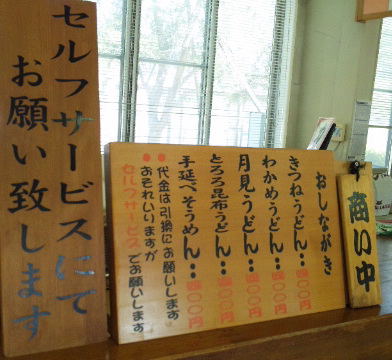 セルフサービスにて
お願い致します
おしながき
きつねうどん‥四〇〇円
わかめうどん‥四〇〇円
月見うどん‥四〇〇円
とろろ昆布うどん‥四〇〇円
手延べそうめん‥四〇〇円
●代金は引換にお願いします
●おそれいりますが
セルフサービスでお願いします
商い中